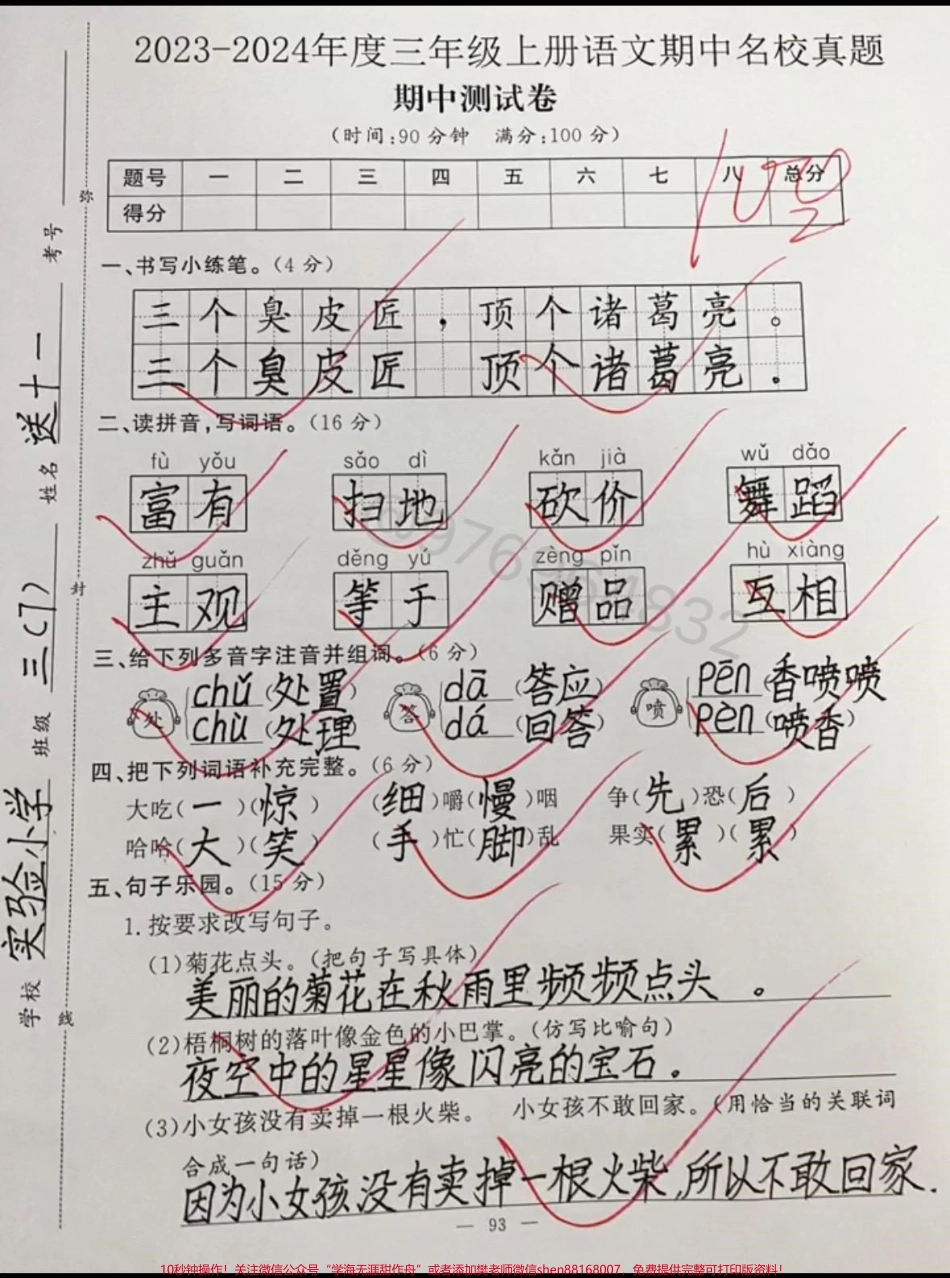 2023-2024年度三年级上册语文期中名校真题
期中测试卷
(时间:90分钟 满分:100分)
题号 一 二 三 四 五 六 七 八 总分
得分
100
一、书写小练笔。(4分)
三个臭皮匠,顶个诸葛亮。
三个臭皮匠 顶个诸葛亮.
二、读拼音,写词语。(16分)
fù yǒu sǎo dì kǎn jià wǔ dǎo
富有 扫地 砍价 舞蹈
zhǔ guān děng yú zèng pǐn hù xiàng
主观 等于 赠品 互相
三、给下列多音字注音并组词。(6分)
处 chǔ (处置) 答 dā (答应) 喷 pēn (香喷喷)
chù (处理) dá (回答) pèn (喷香)
四、把下列词语补充完整。(6分)
大吃(一)(惊) (细)嚼(慢)咽 争(先)恐(后)
哈哈(大)(笑) (手)忙(脚)乱 果实(累)(累)
五、句子乐园。(15分)
1.按要求改写句子。
(1)菊花点头。(把句子写具体)
美丽的菊花在秋雨里频频点头。
(2)梧桐树的落叶像金色的小巴掌。(仿写比喻句)
夜空中的星星像闪亮的宝石。
(3)小女孩没有卖掉一根火柴。 小女孩不敢回家。(用恰当的关联词
合成一句话)
因为小女孩没有卖掉一根火柴,所以不敢回家.
— 93 —
学校 实验小学 班级 三(7) 姓名 送十一 考号
弥 封 线
10秒钟操作!关注微信公众号“学海无涯甜作舟”或者添加樊老师微信shen88168007,免费提供完整可打印版资料!